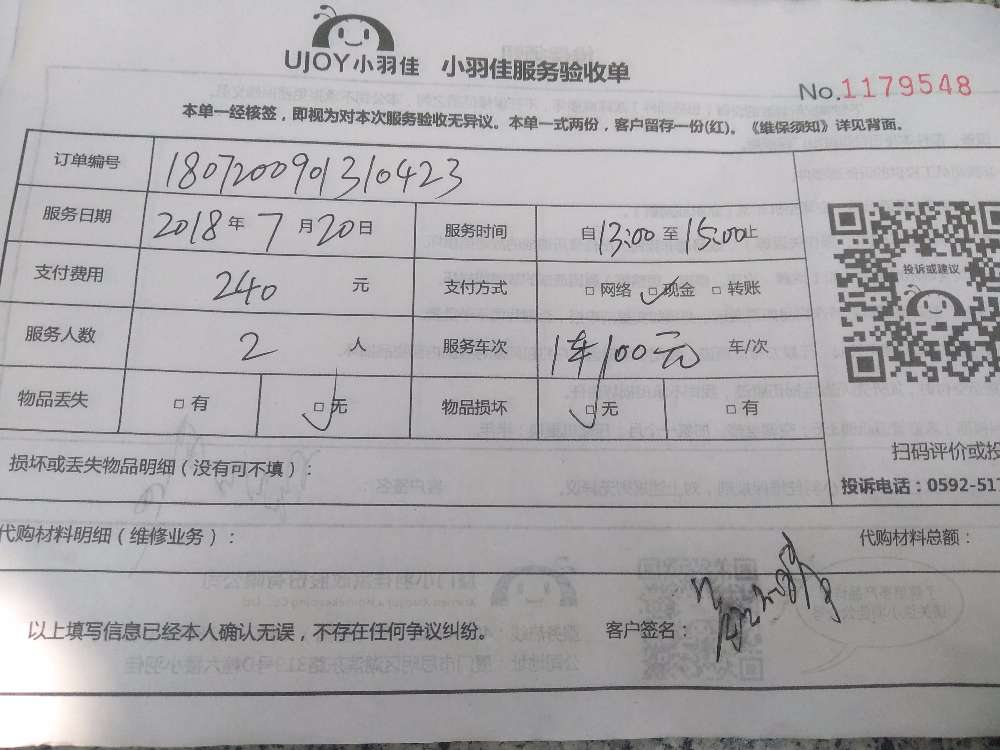 UJOY小羽佳 小羽佳服务验收单
No.1179548
本单一经核签，即视为对本次服务验收无异议。本单一式两份，客户留存一份(红)。《维保须知》详见背面。
订单编号 1807200901310423
服务日期 2018年7月20日 服务时间 自13:00至15:00止
支付费用 240 元 支付方式 □网络 □现金 □转账
投诉或建议
服务人数 2 人 服务车次 1车100元 车/次
物品丢失 □有 □无 物品损坏 □无 □有
扫码评价或投
损坏或丢失物品明细（没有可不填）：
投诉电话：0592-517
代购材料明细（维修业务）： 代购材料总额：
以上填写信息已经本人确认无误，不存在任何争议纠纷。 客户签名：